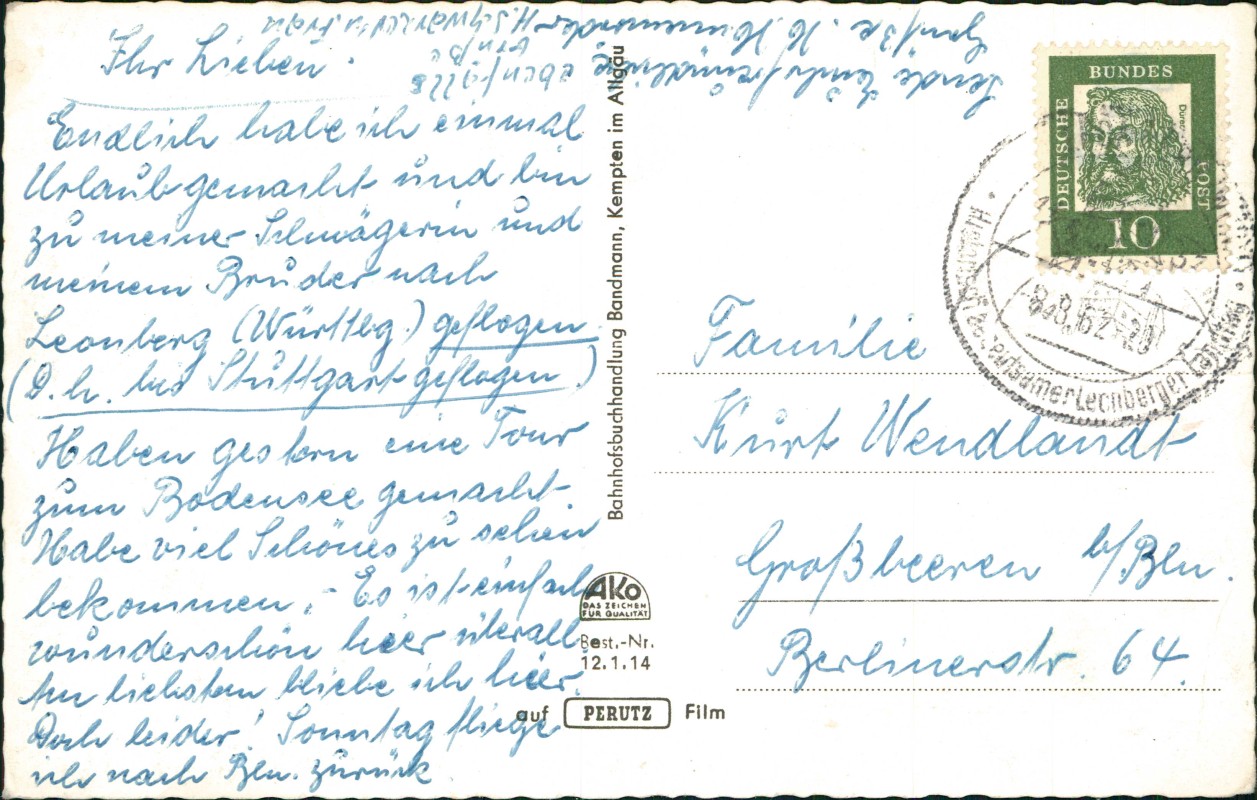 Ihr Lieben
Endlich habe ich einmal
Urlaub gemacht und bin
zu meiner Schwägerin und
meinem Bruder nach
Leonberg (Württbg.) geflogen.
(D. h. bis Stuttgart geflogen.)
Haben gestern eine Tour
zum Bodensee gemacht.
Habe viel Schönes zu sehen
bekommen. - Es ist einfach
wunderschön hier überall.
Am liebsten bliebe ich hier.
Doch leider! Sonntag fliege
ich nach Bln. zurück.
Sende
Grüße
ebenfalls
Grüße
H. Schwarzer u Frau
Bahnhofsbuchhandlung Bandmann, Kempten im Allgäu
AKO
DAS ZEICHEN
FÜR QUALITÄT
Best.-Nr.
12.1.14
auf PERUTZ Film
DEUTSCHE
BUNDES
POST
Dürer
10
8.8.62-20
Leonberger
Familie
Kurt Wendlandt
Großbeeren b/Bln.
Berlinerstr. 64.